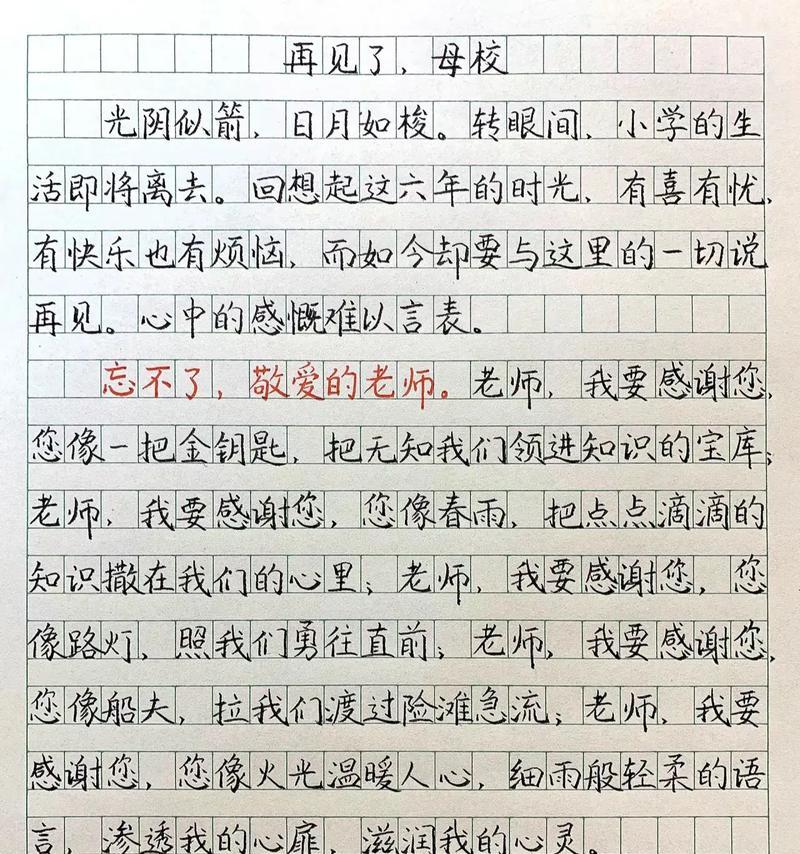 再见了，母校
光阴似箭，日月如梭。转眼间，小学的生
活即将离去。回想起这六年的时光，有喜有忧，
有快乐也有烦恼，而如今却要与这里的一切说
再见。心中的感慨难以言表。
忘不了，敬爱的老师。老师，我要感谢您，
您像一把金钥匙，把无知我们领进知识的宝库；
老师，我要感谢您，您像春雨，把点点滴滴的
知识撒在我们的心里；老师，我要感谢您，您
像路灯，照我们勇往直前；老师，我要感谢您，
您像船夫，拉我们渡过险滩急流；老师，我要
感谢您，您像火光温暖人心，细雨般轻柔的语
言，渗透我的心扉，滋润我的心灵。